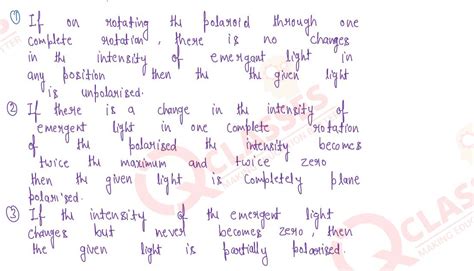 ① If on rotating the polaroid through one
complete rotation, there is no changes
in the intensity of emergant light in
any position then the the given light
is unpolarised.
② If there is a change in the intensity of
emergent light in one complete rotation
of the polarised the intensity becomes
twice the maximum and twice zero
then the given light is completely plane
polarised.
③ If the intensity of the emergent light
changes but never becomes zero, then
the given light is partially polarised.
QCLASSES